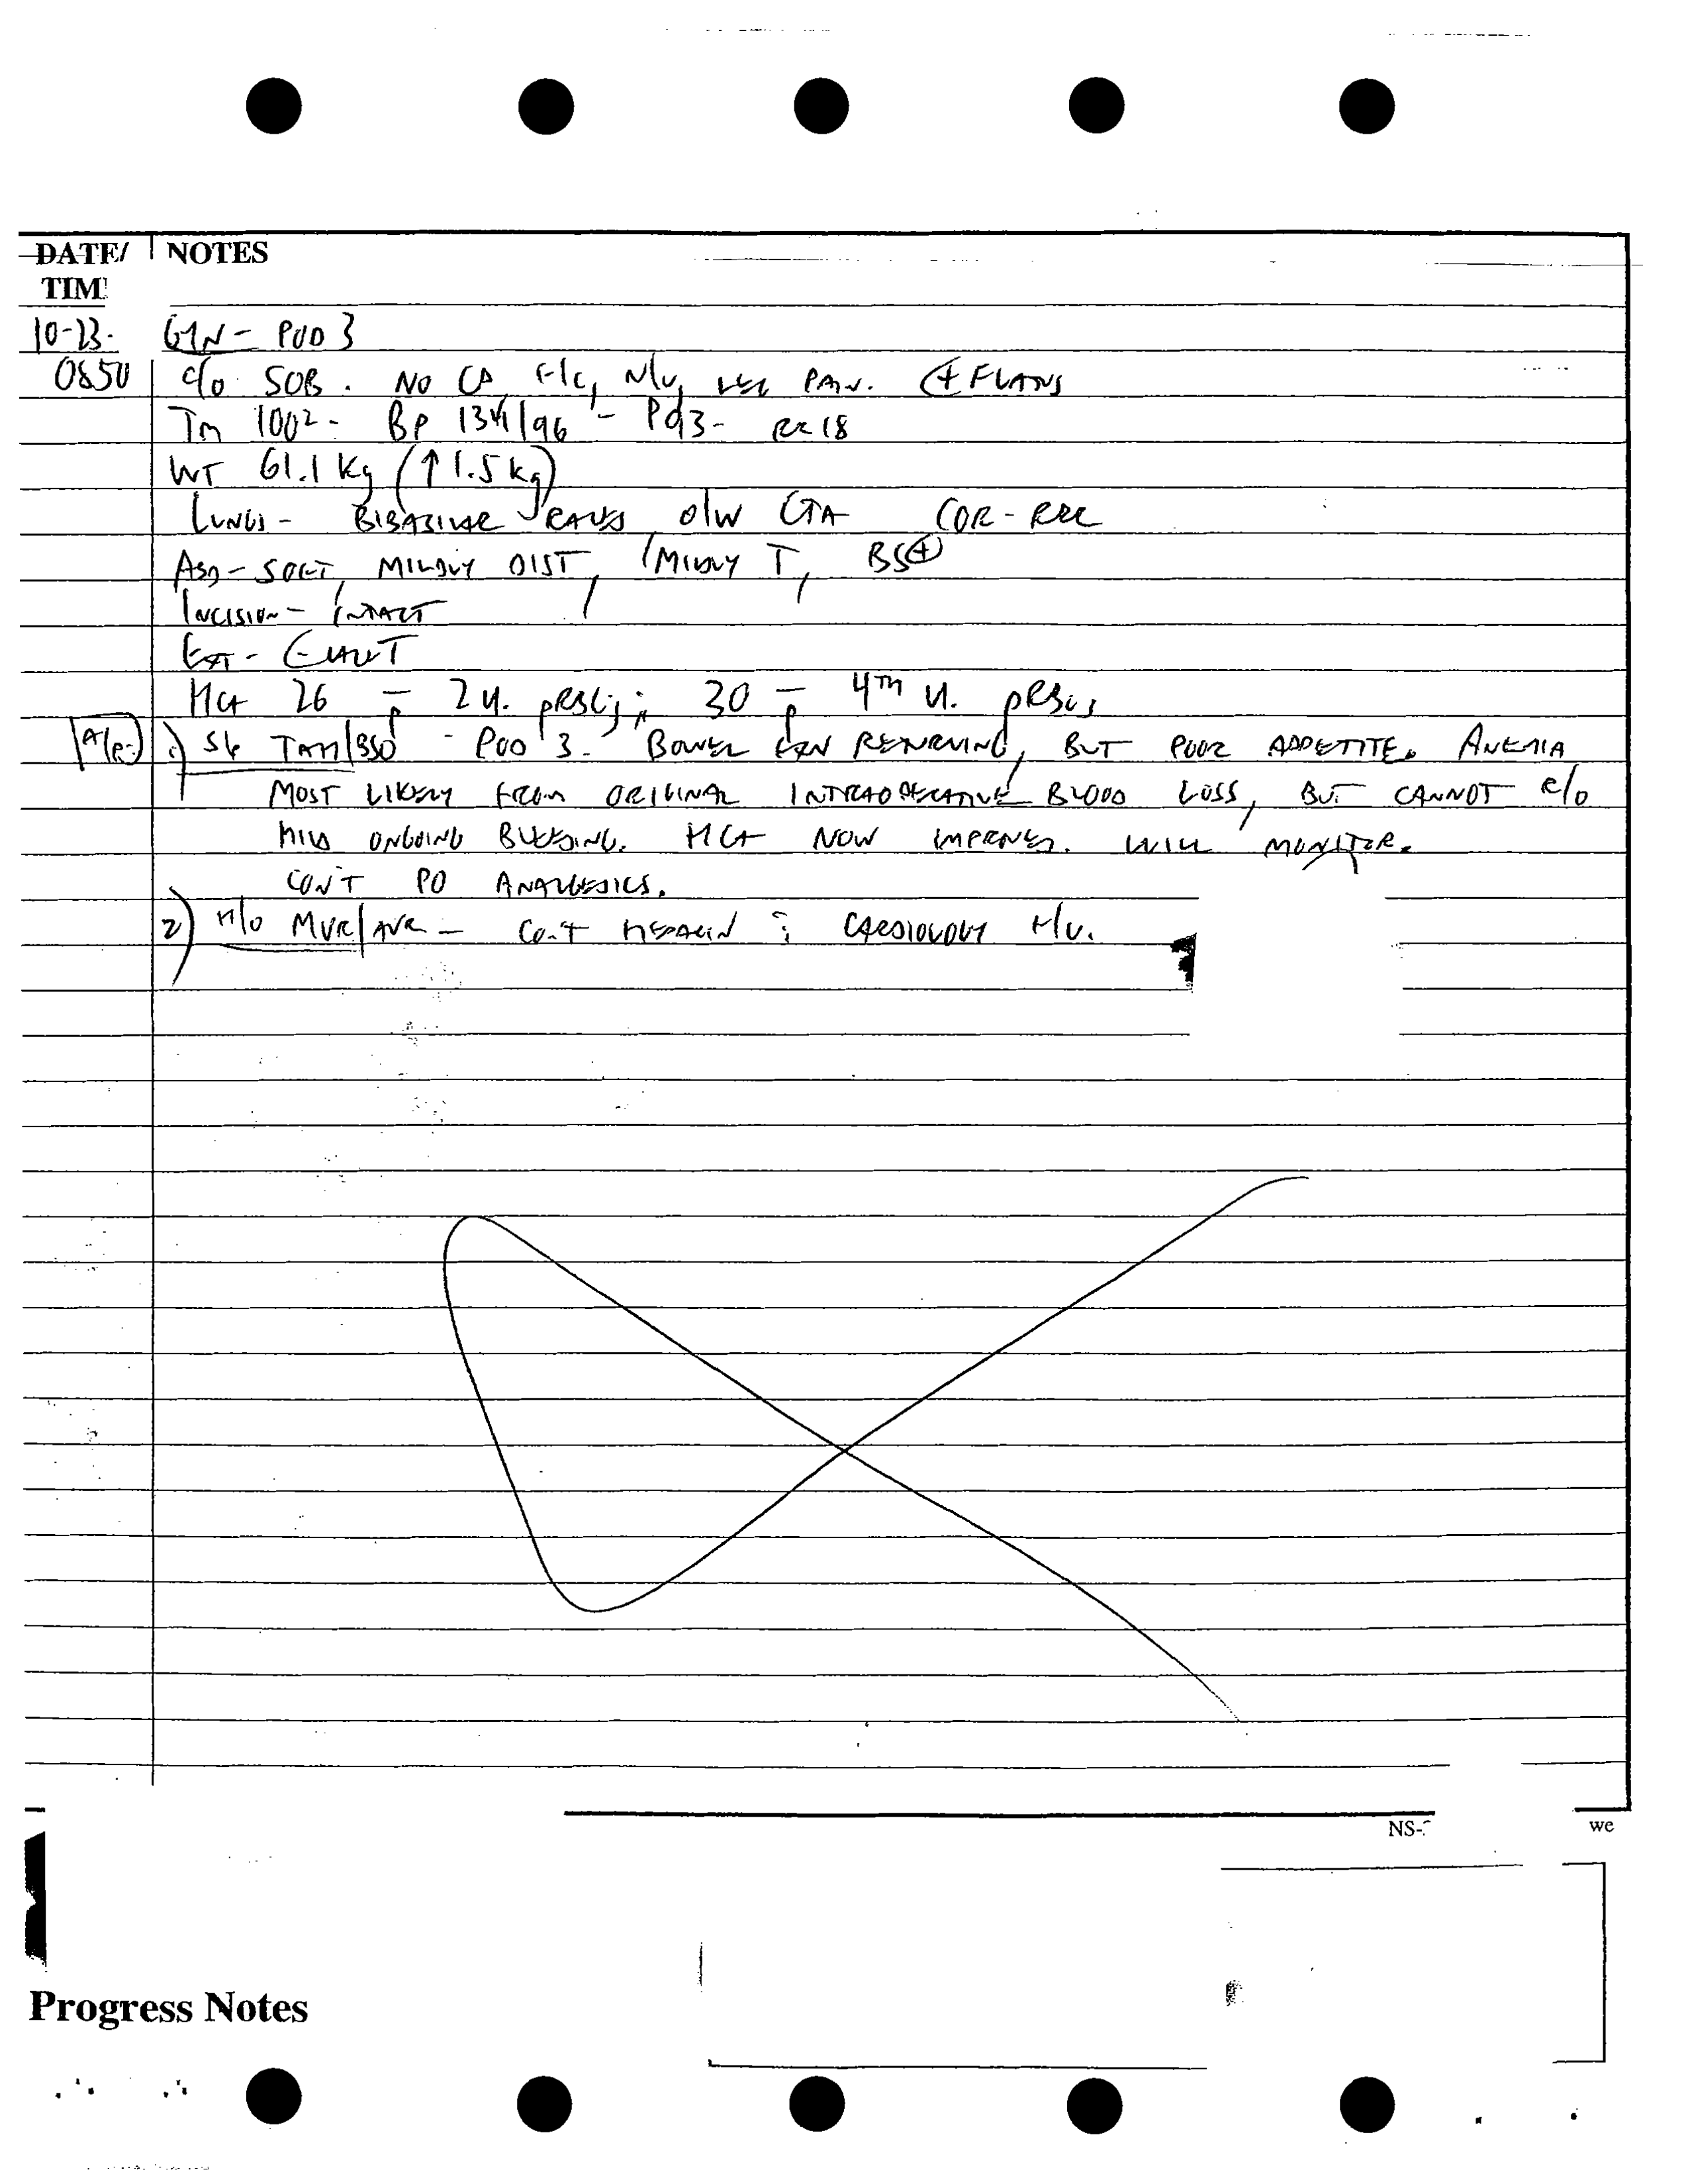 DATE/ NOTES
TIM
10-23- GYN - POD 3
0850 c/o SOB. NO CP, F/C, N/V, LEG PAIN. ⊕ FLATUS
Tm 100² - BP 134/96 - P93 - RR 18
WT 61.1 kg (↑ 1.5 kg)
LUNGS - BIBASILAR RALES O/W CTA COR - RRR
ABD - SOFT, MILDLY DIST, MILDLY T, BS⊕
INCISION - INTACT
EXT -
HCT 26 p̄ 2 U. pRBCs; 30 p̄ 4TH U. pRBCs
A/P: 1) S/P TAH/BSO - POD 3 - BOWEL FXN RETURNING, BUT POOR APPETITE. ANEMIA
MOST LIKELY FROM ORIGINAL INTRAOPERATIVE BLOOD LOSS, BUT CANNOT R/O
MILD ONGOING BLEEDING. HCT NOW IMPROVED. WILL MONITOR.
CON'T PO ANALGESICS.
2) H/O MVR/AVR - CON'T HEPARIN; CARDIOLOGY F/U.
NS- we
Progress Notes